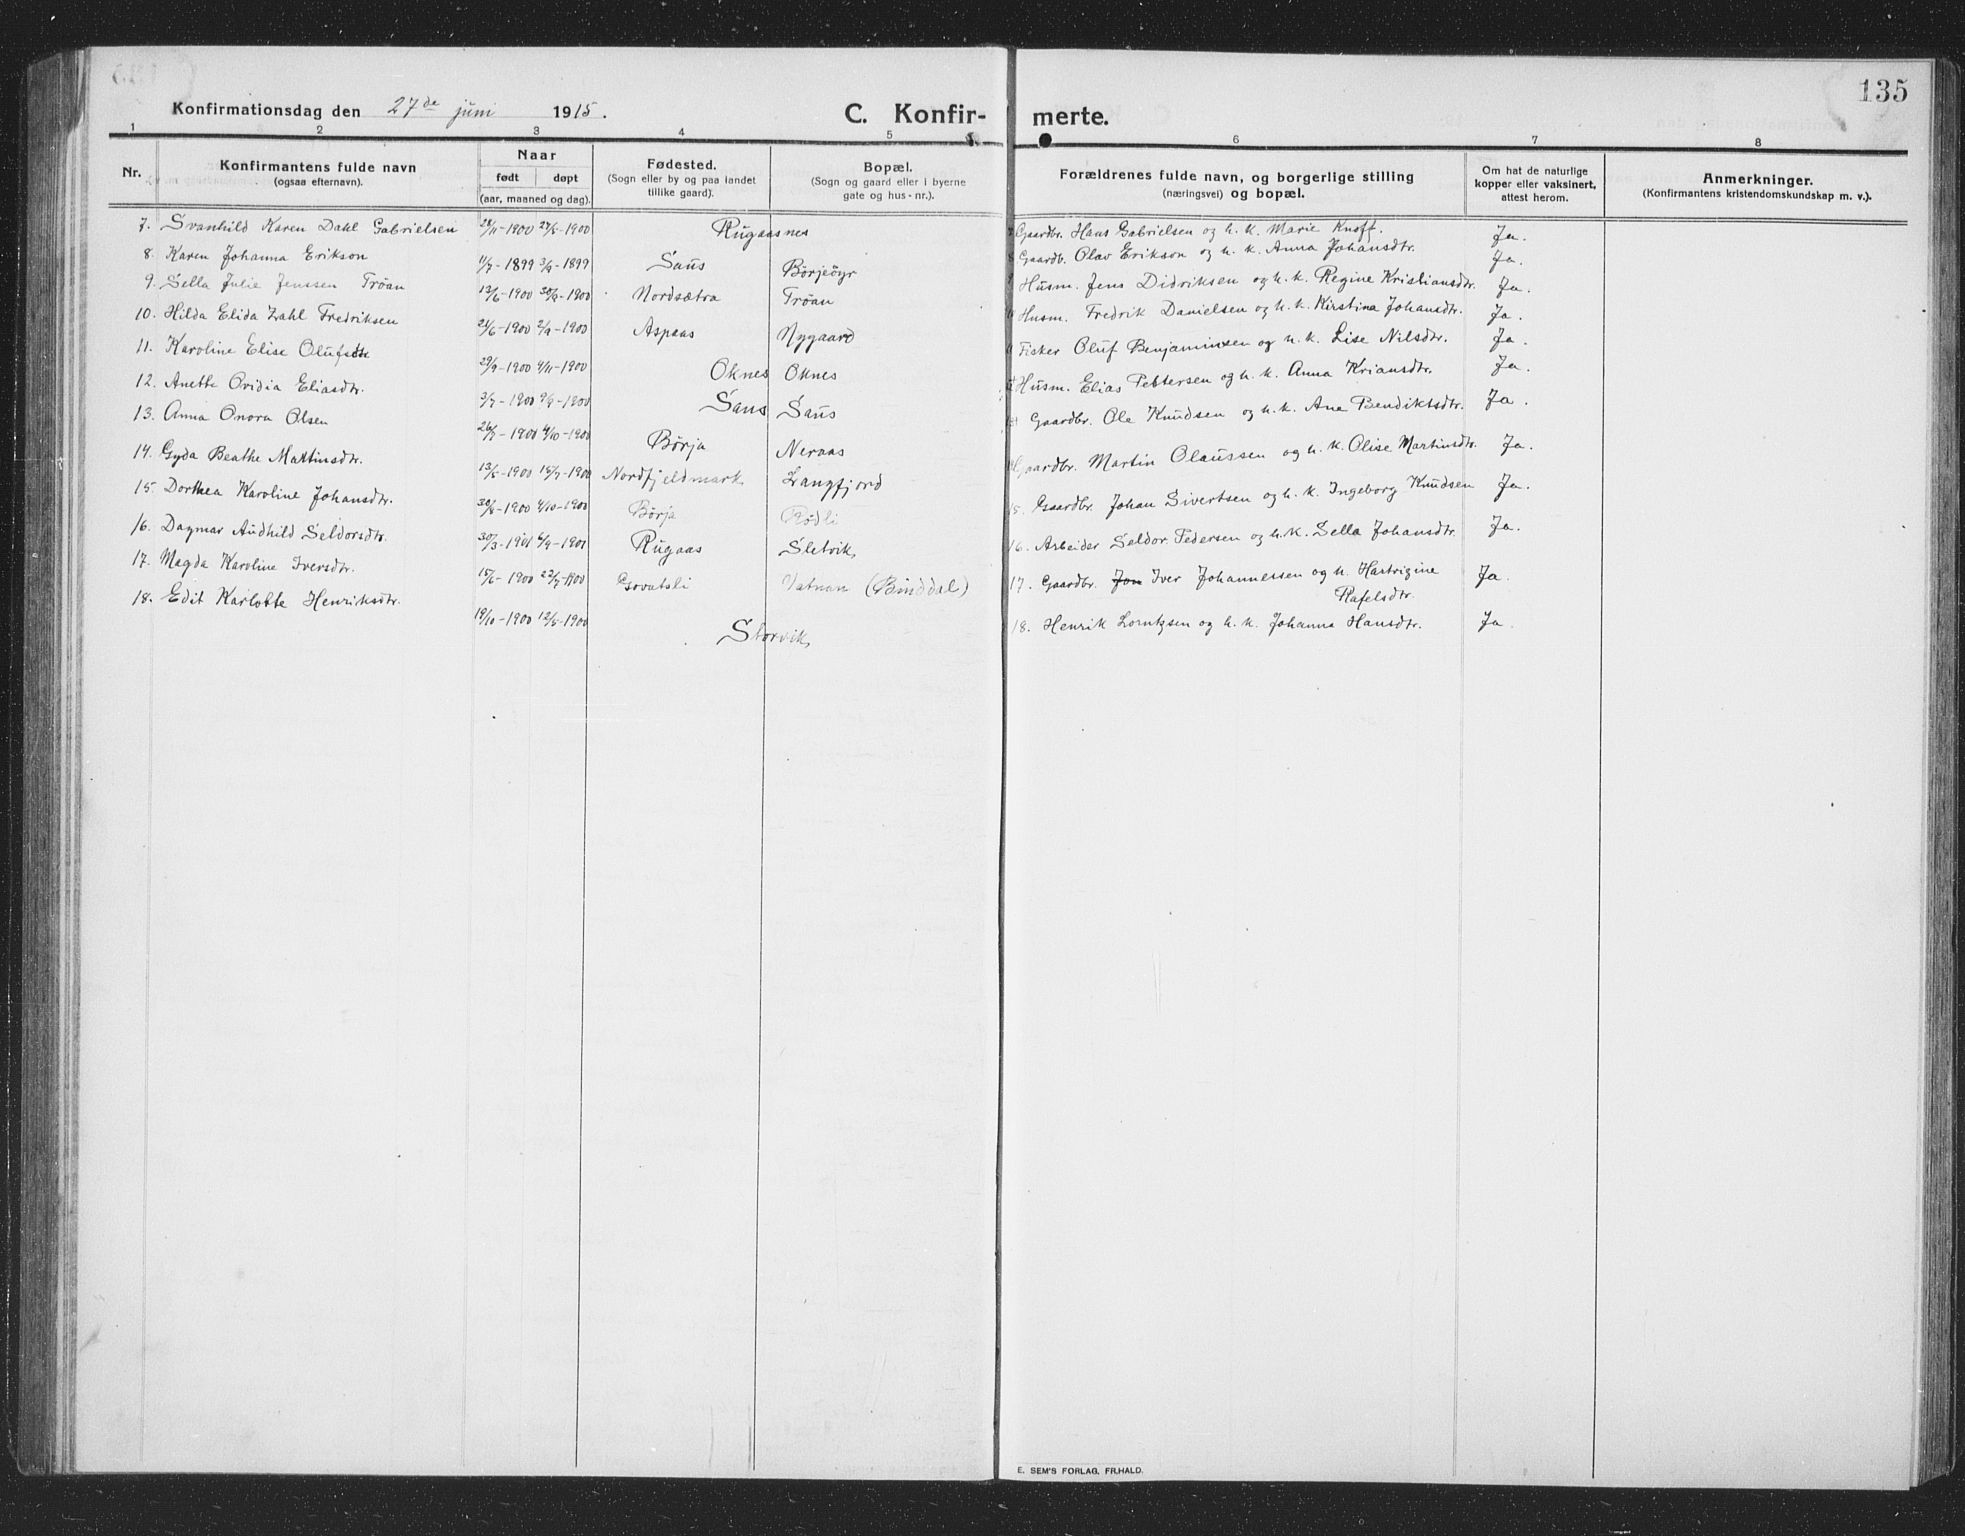 135
Konfirmationsdag den 27de juni 1915. C. Konfir- merte.
1 2 3 4 5 6 7 8
Nr. Konfirmantens fulde navn (ogsaa efternavn). Naar født døpt (aar, maaned og dag). Fødested. (Sogn eller by og paa landet tillike gaard). Bopæl. (Sogn og gaard eller i byerne gate og hus-nr.). Forældrenes fulde navn, og borgerlige stilling (næringsvei) og bopæl. Om hat de naturlige kopper eller vaksinert, attest herom. Anmerkninger. (Konfirmantens kristendomskundskap m. v.).
7. Svanhild Karen Dahl Gabrielsen Rugaasnes Gaardbr. Hans Gabrielsen og h. k. Marie Knoff. Ja.
8. Karen Johanna Erikson 11/7-1899 3/9-1899 Saus Børjeöyr Gaardb. Olav Erikson og h. k. Anna Johansdtr. Ja.
9. Sella Julie Jenssen Trøan 13/6-1900 30/9-1900 Nordsætra Trøan Husm. Jens Didriksen og h. k. Regine Kristiansdtr. Ja.
10. Hilda Elida Zahl Fredriksen 21/6-1900 2/9-1900 Aspaas Nygaard Husm. Fredrik Danielsen og h. k. Kirstina Johansdtr. Ja.
11. Karoline Elise Olufsdn 29/9-1900 4/11-1900 Oknes Oknes Fisker Oluf Benjaminsen og h. k. Lise Nilsdtr. Ja.
12. Anette Ovidia Eliasdtr. 3/7-1900 9/9-1900 Saus Saus Husm. Elias Pettersen og h. k. Anna Kriansdtr. Ja.
13. Anna Onora Olsen 26/7-1900 4/10-1900 Børja Neraas Gaardbr. Ole Knudsen og h. k. Ane Bendiktsdtr. Ja.
14. Gyda Beathe Martinsdtr. 13/5-1900 15/7-1900 Nordfjeldmark Langfjord Gaardbr. Martin Olaussen og h. k. Olise Martinsdtr. Ja.
15. Dorthea Karoline Johansdtr. 30/8-1900 4/10-1900 Børja Rødli 15. Gaardbr. Johan Sivertsen og h. k. Ingeborg Knudsen Ja.
16. Dagmar Audhild Seldorsdtr. 30/3-1901 6/9-1901 Rugaas Sletvik 16. Arbeider Seldor Pedersen og h. k. Sella Johansdtr. Ja.
17. Magda Karoline Iversdtr. 15/6-1900 22/7-1900 Govatsli Vatnan (Binddal) 17. Gaardbr. Jon Iver Johannessen og h. Hartvigine Rafelsdtr. Ja.
18. Edit Karlotte Henriksdtr. 19/10-1900 12/5-1900 Storvik 18. Henrik Lorntzsen og h. k. Johanna Hansdtr. Ja.
E. SEM'S FORLAG, FR.HALD.